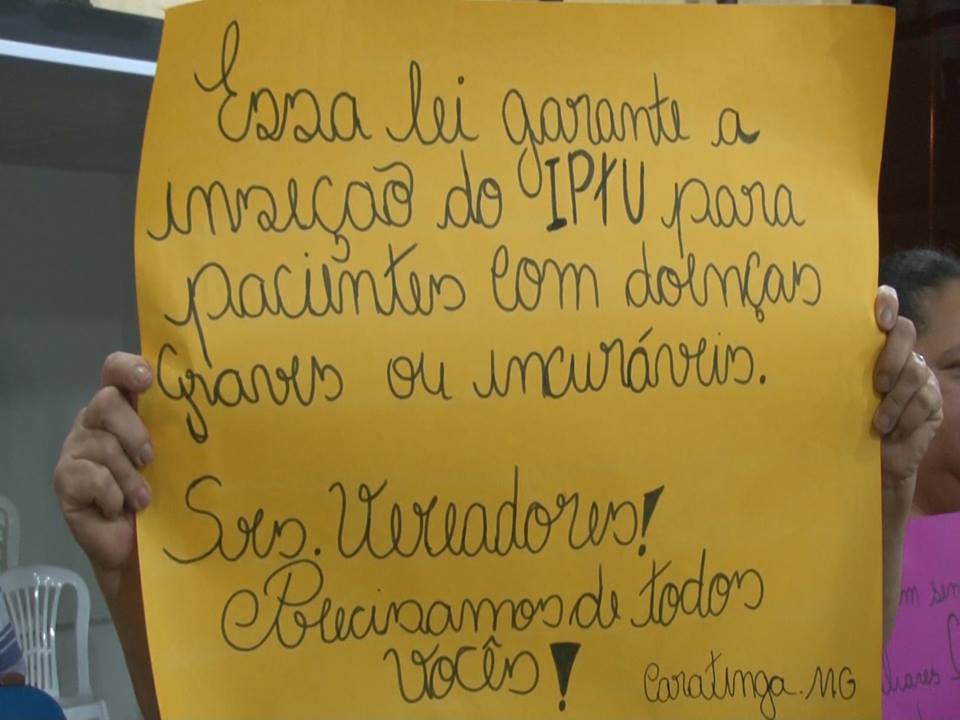 Essa lei garante a
inseção do IPTU para
pacientes com doenças
graves ou incuráveis.
Srs. Vereadores!
Precisamos de todos
vocês!
Caratinga. MG